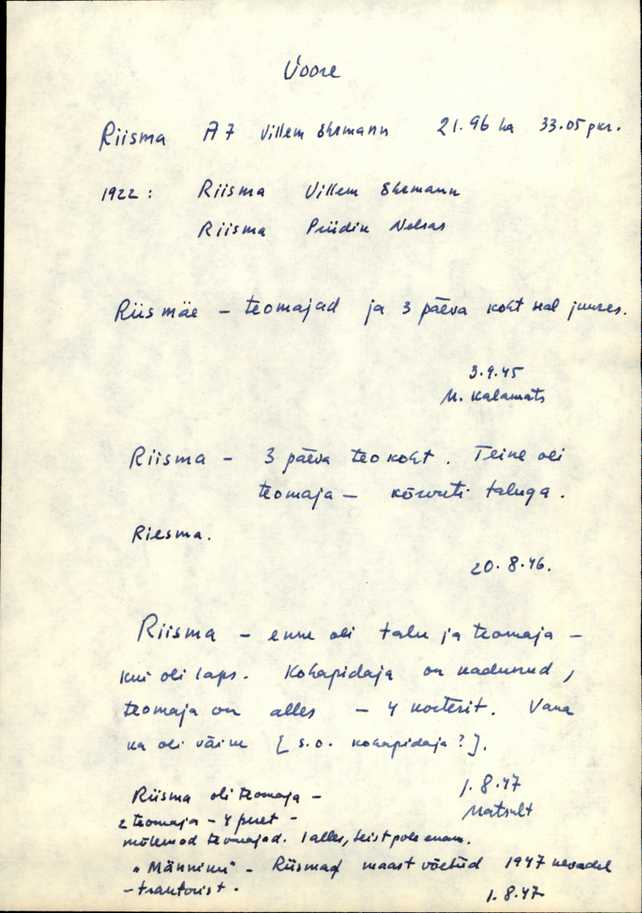 Voore
Riisma A7 Villem Ehrmann 21.96 ha 33.05 pkr.
1922: Riisma Villem Ehrmann
Riisma Priidik
Riismäe – teomajad ja 3 päeva koht seal juures.
3.9.45
M. Kalamats
Riisma – 3 päeva teokoht. Teine oli
teomaja – kõrvuti taluga.
Riesma.
20.8.46.
Riisma – enne oli talu ja teomaja –
kui oli laps. Kohapidaja on kadunud,
teomaja on alles – 4 korterit. Vana
ka oli väike [s.o. kohapidaja?].
1.8.47
Matsult
Riisma oli teomaja –
2 teomaja – 4 peret –
mõlemad teomajad. 1 alles, teist pole enam.
"Männiku" – Riismaḁ maast võetud 1947 kevadel
– traktorist.
1.8.47